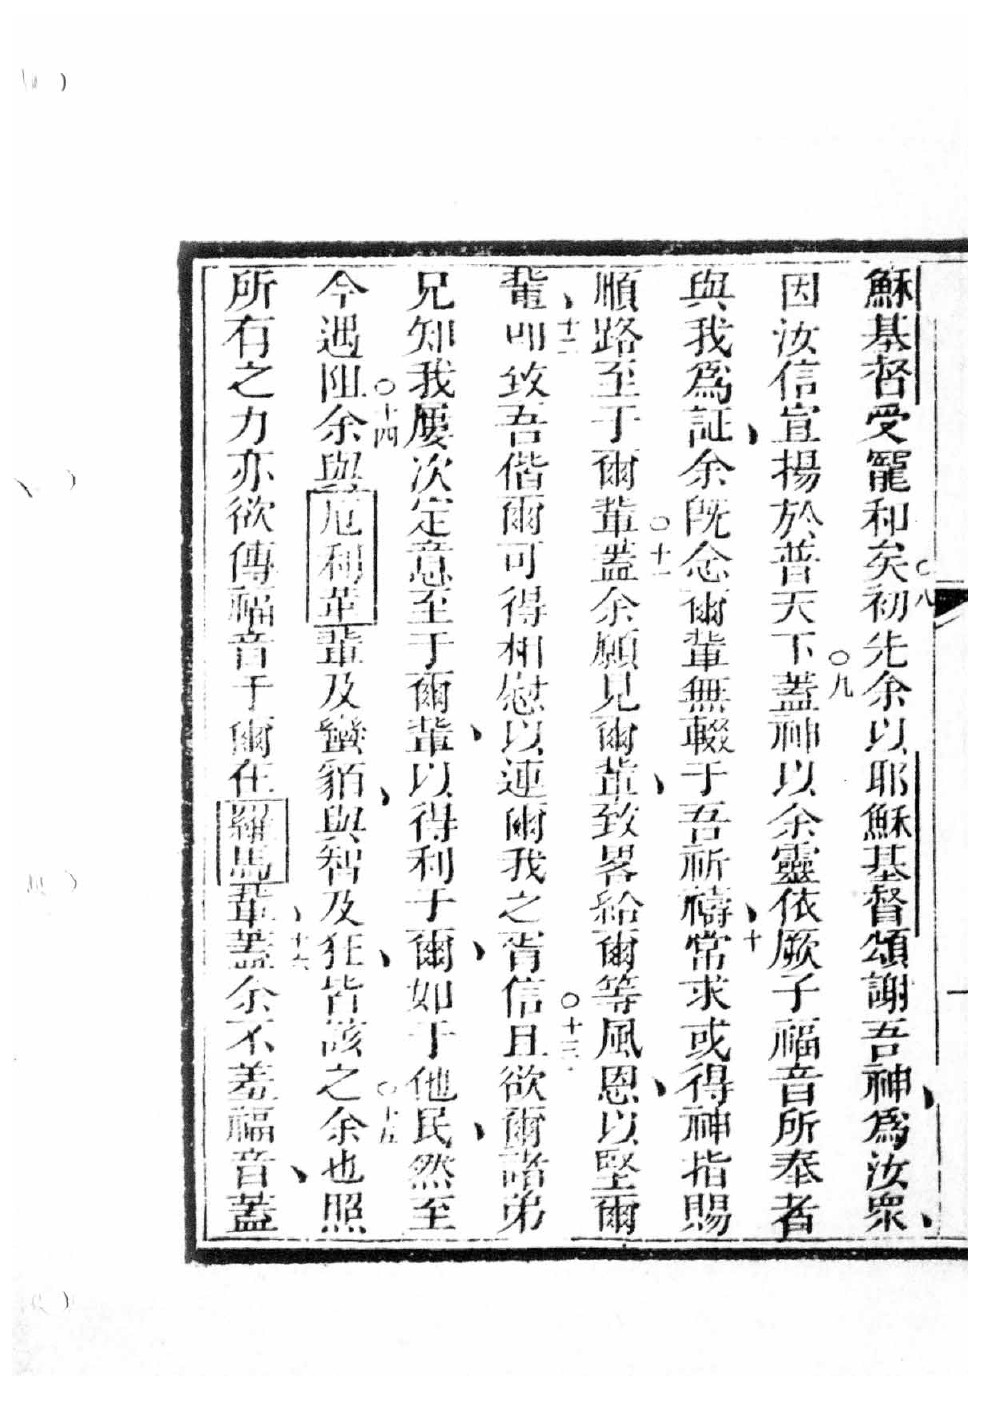 穌基督受寵和矣○八初先余以耶穌基督頌謝吾神爲汝衆
因汝信宣揚於普天下○九蓋神以余靈依厥子福音所奉者
與我爲証余旣念爾輩無輟于吾祈禱十常求或得神指賜
順路至于爾輩○十一蓋余願見爾輩致畧給爾等風恩以堅爾
輩十二卽致吾偕爾可得相慰以連爾我之胥信○十三且欲爾諸弟
兄知我屢次定意至于爾輩以得利于爾如于他民然至
今遇阻○十四余與厄利革輩及蠻貊與智及狂皆該之○十五余也照
所有之力亦欲傳福音于爾在羅馬輩十六蓋余不羞福音蓋